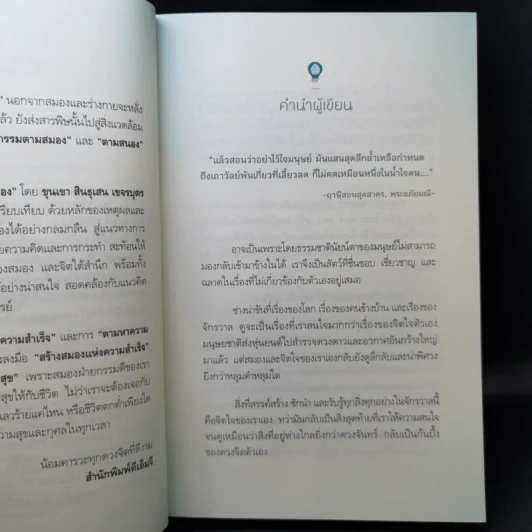 ” นอกจากสมองและร่างกายจะหลั่ง
ล้ว ยังส่งสารพิษนั้นไปสู่สิ่งแวดล้อม
กรรมตามสมอง” และ “ตามสนอง”
อง” โดย ขุนเขา สินธุเสน เขจรบุตร
รียบเทียบ ด้วยหลักของเหตุผลและ
องได้อย่างกลมกลืน สู่แนวทางการ
ยความคิดและการกระทำ สะท้อนให้
องสมอง และจิตใต้สำนึก พร้อมทั้ง
อย่างน่าสนใจ สอดคล้องกับแนวคิด
รย์
ความสำเร็จ” และการ “ตามหาความ
รลงมือ “สร้างสมองแห่งความสำเร็จ”
สุข” เพราะสมองฝ่ายกรรมดีของเรา
สุขให้กับชีวิต ไม่ว่าเราจะต้องเจอกับ
ลวร้ายแค่ไหน หรือชีวิตตกต่ำเพียงใด
วามสุขและกุศลในทุกเวลา
น้อมคารวะทุกดวงจิตที่ดีงาม
สำนักพิมพ์ดีเอ็มจี
คำนำผู้เขียน
“แล้วสอนว่าอย่าไว้ใจมนุษย์ มันแสนสุดลึกล้ำเหลือกำหนด
ถึงเถาวัลย์พันเกี่ยวที่เลี้ยวลด ก็ไม่คดเหมือนหนึ่งในน้ำใจคน...”
-ฤๅษีสอนสุดสาคร, พระอภัยมณี-
อาจเป็นเพราะโดยธรรมชาตินัยน์ตาของมนุษย์ไม่สามารถ
มองกลับเข้ามาข้างในได้ เราจึงเป็นสัตว์ที่ชื่นชอบ เชี่ยวชาญ และ
ฉลาดในเรื่องที่ไม่เกี่ยวข้องกับตัวเองอยู่เสมอ
ช่างน่าขันที่เรื่องของโลก เรื่องของคนข้างบ้าน และเรื่องของ
จักรวาล ดูจะเป็นเรื่องที่เราสนใจมากกว่าเรื่องของจิตใจตัวเอง
มนุษยชาติส่งหุ่นยนต์ไปสำรวจดวงดาวและอวกาศอันกว้างใหญ่
มาแล้ว แต่สมองและจิตใจของเราเองกลับยังดูลึกลับและน่าพิศวง
ยิ่งกว่าหลุมดำหลุมใด
สิ่งที่สรรค์สร้าง ชักนำ และรับรู้ทุกสิ่งทุกอย่างในจักรวาลนี้
คือจิตใจของเราเอง ทว่ามันกลับเป็นสิ่งสุดท้ายที่เราให้ความสนใจ
จนดูเหมือนว่าสิ่งที่อยู่ห่างไกลยิ่งกว่าดวงจันทร์ กลับเป็นก้นบึ้ง
ของดวงจิตตัวเอง